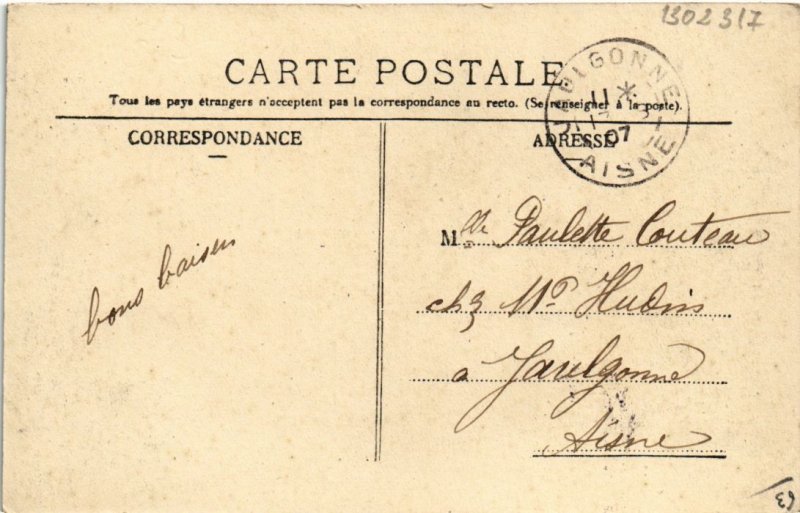 1302317
CARTE POSTALE
Tous les pays étrangers n'acceptent pas la correspondance au recto. (Se renseigner à la poste).
JAULGONNE
11 *
07
AISNE
CORRESPONDANCE
ADRESSE
bons baisers
Mlle Paulette Couteau
chz Mr Hudin
a Jaulgonne
Aisne
63